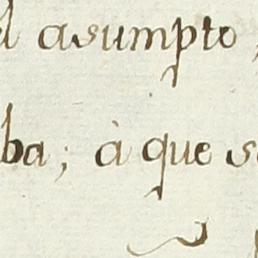 asumpto
ba; à que